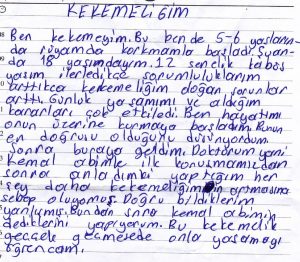 KEKEMELİĞİM
Ben kekemeyim. Bu bende 5-6 yaşların-
da rüyamda korkmamla başladı. Şuyan-
da 18 yaşımdayım. 12 senelik kabos
yaşım ilerledikçe sorumluluklarım
arttıkca kekemeliğim doğan sorunlar
arttı. Günlük yaşamımı ve aldığım
kararları çok etkiledi. Ben hayatımı
onun üzerine kurmaya başladım. Bunun
en doğrusu olduğunu düşünüyordum.
Sonra buraya geldim. Doktorum yani
Kemal abimle ilk konuşmamızdan
sonra anladımki yaptığım her
şey daha kekemeliğimin artmasına
sebep oluyomuş. Doğru bildiklerim
yanlışmış. Bundan sonra kemal abimin
dediklerini yapıyorum. Bu kekemelik
geçsede geçmesede onla yaşamayı
öğrencam.